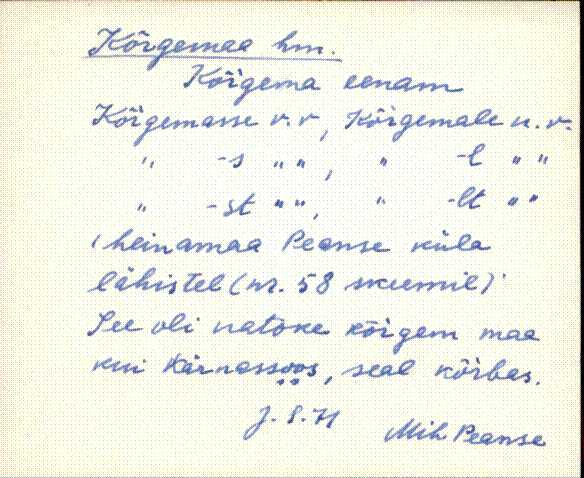 Kõrgemaa hm.
Kõrgema eenam
Kõrgemasse v.v, Kõrgemale u.v.
" -s " ", " -l " "
" -st " ", " -lt " "
(heinamaa Peanse küla
lähistel (nr. 58 skeemil)
See oli natoke kõrgem maa
kui Kärnassoos, seal kõrbas.
J. S. H Mih Peanse